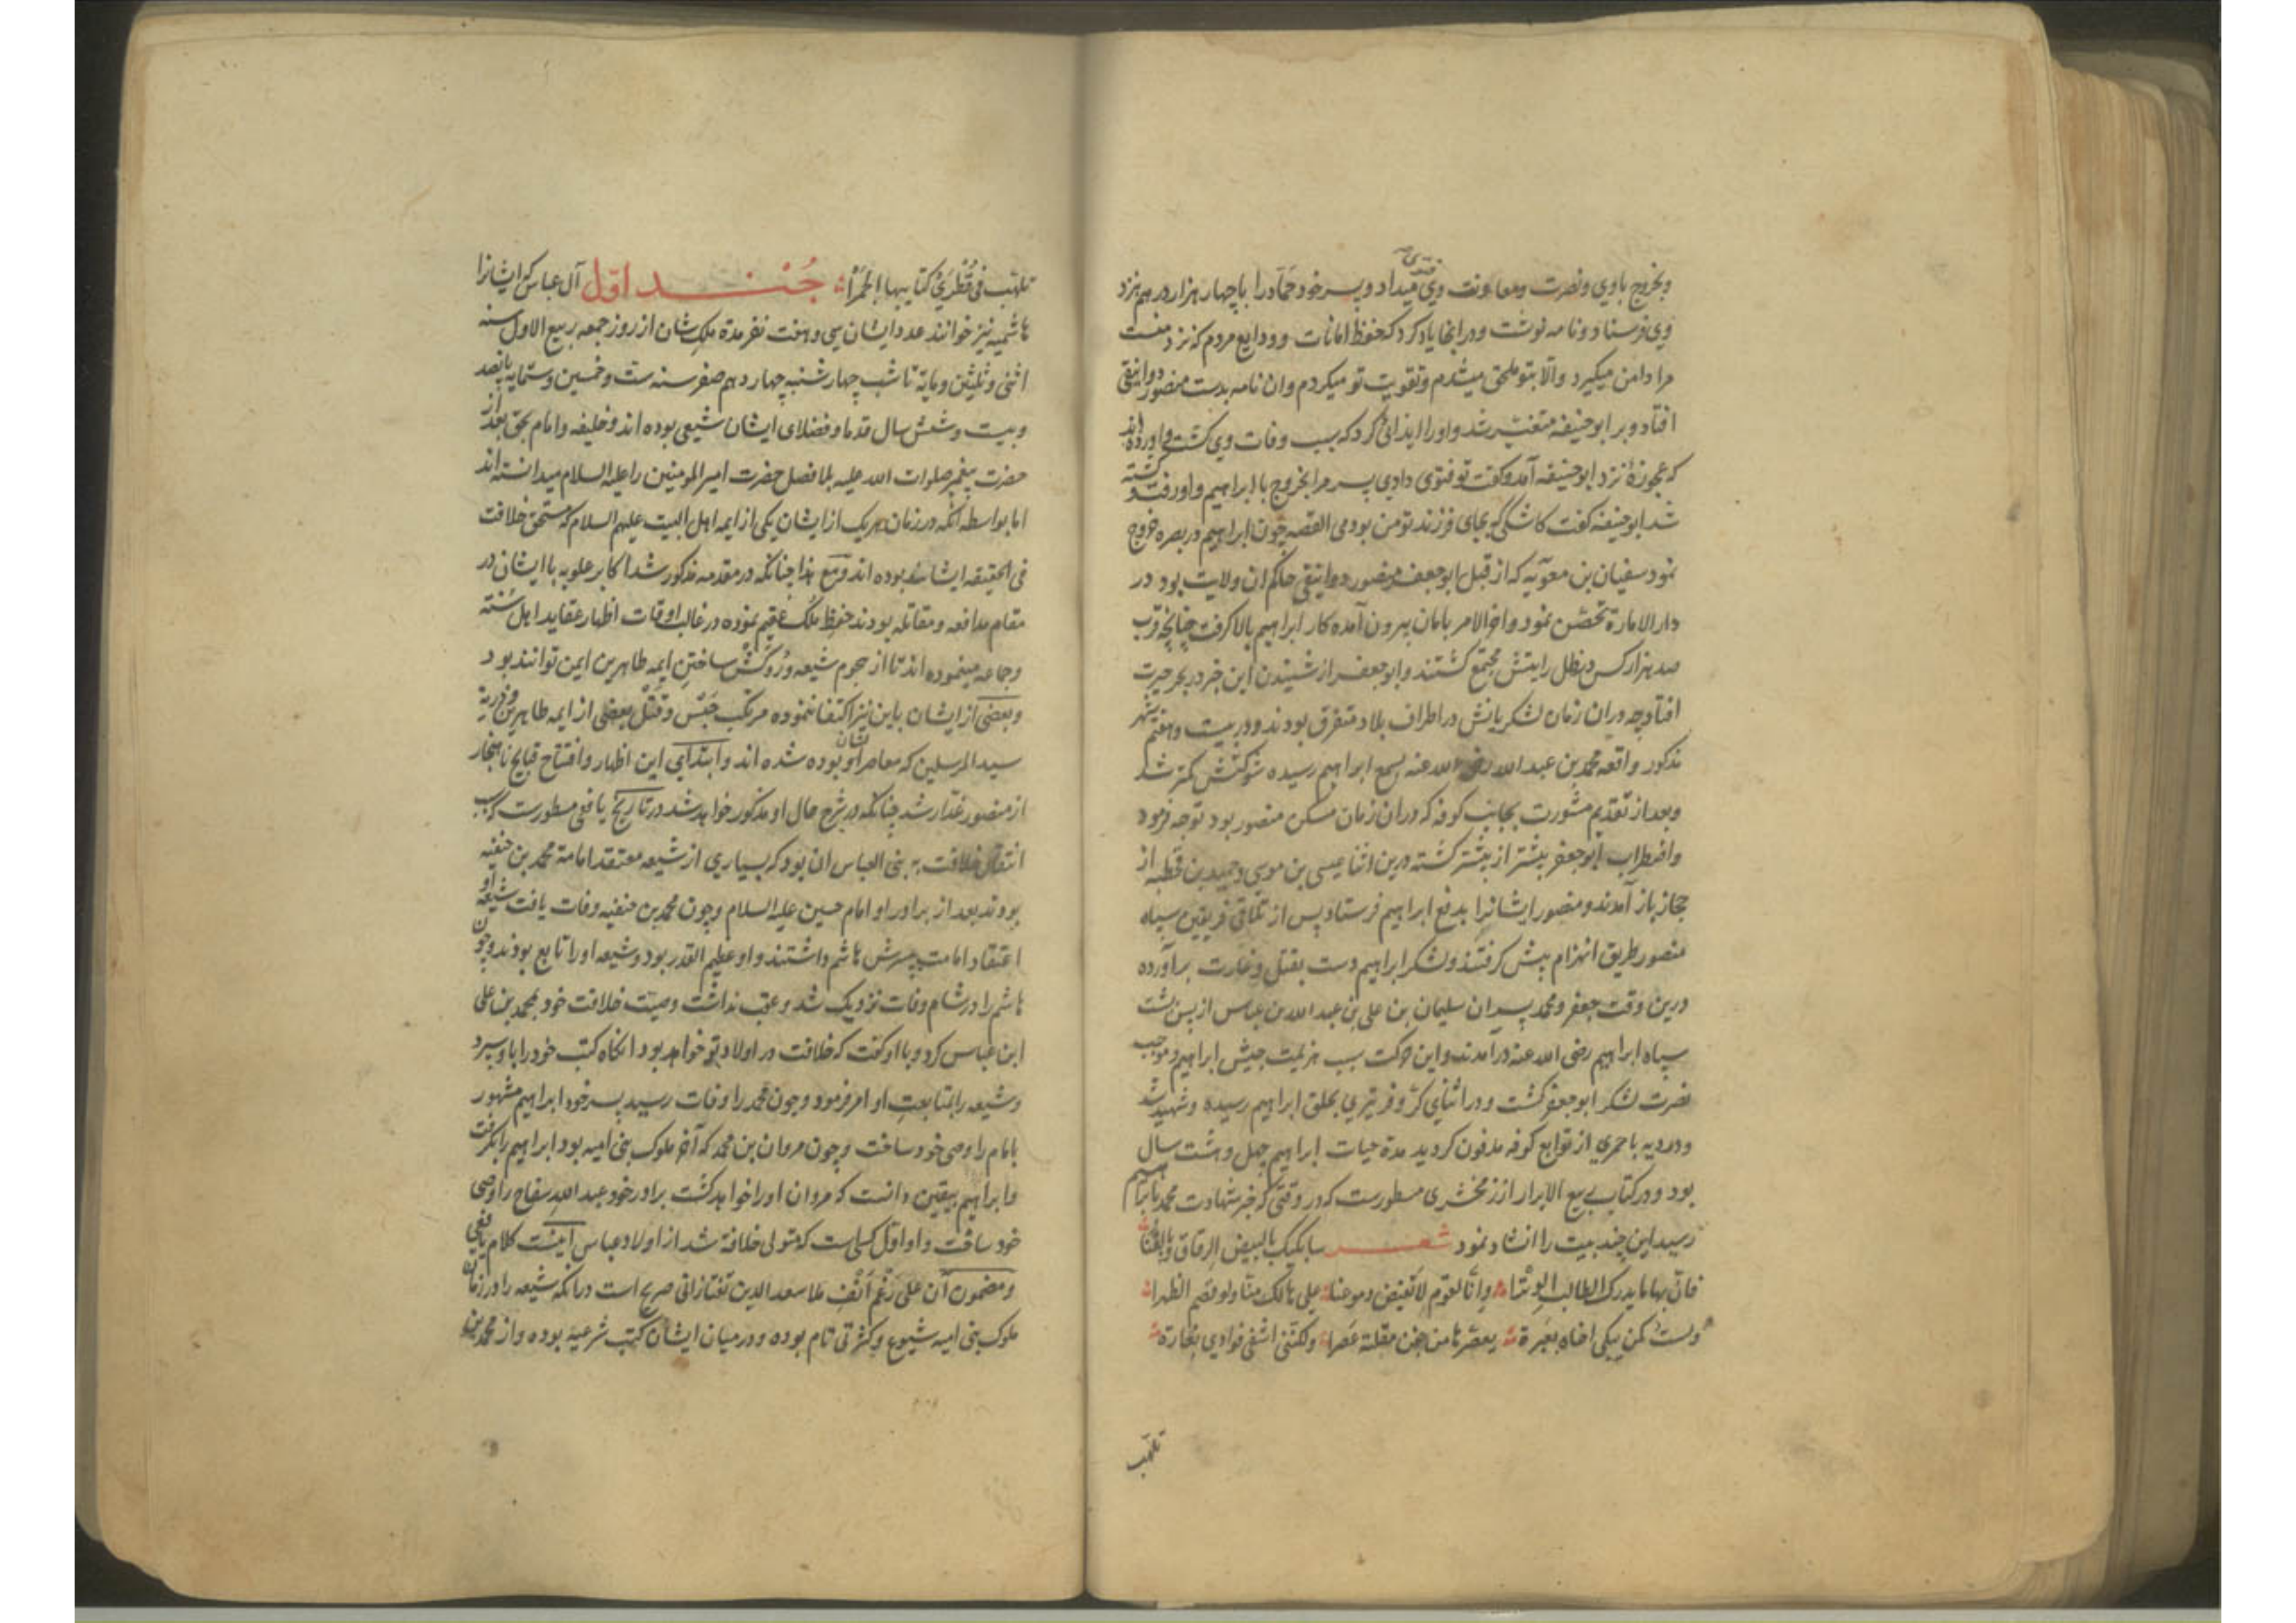 و بخروج باوی و نصرت و معاونت وی فتوی میداد و پسر خود حماد را با چهار هزار درهم نزد
وی فرستاد و نامه نوشت و در انجا یاد کرد که حفظ امانات و ودایع مردم که نزد منست
مرا دامن میگیرد و الا بتو ملحق میشدم و تقویت تو میکردم و ان نامه بدست منصور دوانیقی
افتاد و بر ابو حنیفه متغیر شد و او را ایذائی کرد که سبب وفات وی گشت و اورده‌اند
که عجوزۀ نزد ابو حنیفه آمد و گفت تو فتوی دادی پسر مرا بخروج با ابراهیم و او رفت و کشته
شد ابو حنیفه گفت کاشکی بجای فرزند تو من بودمی القصه چون ابراهیم در بصره خروج
نمود سفیان بن معویه که از قبل ابو جعفر منصور دوانیقی حاکم ان ولایت بود در
دار الامارة تحصن نمود و اخر الامر بامان بیرون آمده کار ابراهیم بالا گرفت چنانچه قرب
صد هزار کس در ظل رایتش مجتمع گشتند و ابو جعفر از شنیدن این خبر در بحر حیرت
افتاد چه دران زمان لشکریانش در اطراف بلاد متفرق بودند و در بیست و هفتم شهر
مذکور واقعه محمد بن عبد الله رضی الله عنه بسمع ابراهیم رسیده شوکتش کمتر شد
و بعد از تقدیم مشورت بجانب کوفه که دران زمان مسکن منصور بود توجه فرمود
و اضطراب ابو جعفر بیشتر از پیشتر گشته درین اثنا عیسی بن موسی و حمید بن قحطبه از
حجاز باز آمدند و منصور ایشانرا بدفع ابراهیم فرستاد پس از تلاقی فریقین سپاه
منصور طریق انهزام پیش گرفتند و لشکر ابراهیم دست بقتل و غارت برآورده
درین وقت جعفر و محمد پسران سلیمان بن علی بن عبد الله بن عباس از پس پشت
سپاه ابراهیم رضی الله عنه درآمدند و این حرکت سبب هزیمت جیش ابراهیم و موجب
نصرت لشکر ابو جعفر گشت و در اثنای کر و فر تیری بحلق ابراهیم رسیده و شهید شد
و در دیه باحمری از توابع کوفه مدفون گردید مدة حیات ابراهیم چهل و هشت سال
بود و در کتاب ربیع الابرار از زمخشری مسطورست که در وقتی که خبر شهادت محمد بابراهیم
رسید این چند بیت را انشاد نمود شعر سابکیک بالبیض الرقاق و بالقنا
فان بها ما یدرک الطالب الوترا و انا لقوم لا تفیض دموعنا علی هالک منا و لو قصم الظهرا
و لست کمن یبکی اخاه بعبرة یعصرها من جفن مقلته عصرا و لکننی اشفی فوادی بغارة
تلهب
تلهب فی قطری کتایبها الجمرا جند اول آل عباس که ایشانرا
هاشمیه نیز خوانند عدد ایشان سی و هفت نفر مدة ملک شان از روز جمعه ربیع الاول سنه
اثنی و ثلثین و مایة تا شب چهارشنبه چهاردهم صفر سنه ست و خمسین و ستمایه پانصد
و بیست و شش سال قدما و فضلای ایشان شیعی بوده اند و خلیفه و امام بحق بعد از
حضرت پیغمبر صلوات الله علیه بلا فصل حضرت امیر المومنین را علیه السلام میدانسته‌اند
اما بواسطه آنکه در زمان هر یک از ایشان یکی از ایمه اهل البیت علیهم السلام که مستحق خلافت
فی الحقیقه ایشانند بوده اند و مع هذا چنانکه در مقدمه مذکور شد اکابر علویه با ایشان در
مقام مدافعه و مقاتله بودند حفظ ملک عقیم نموده در غالب اوقات اظهار عقاید اهل سنته
و جماعه مینموده اند تا از هجوم شیعه و روکش ساختن ایمه طاهرین ایمن توانند بود
و بعضی از ایشان باین نیز اکتفا ننموده مرتکب حبس و قتل بعضی از ایمه طاهرین و ذریة
سید المرسلین که معاصر ایشان بوده شده اند و ابتدای این اظهار و افتتاح قبایح ناهنجار
از منصور غدار شد چنانکه در شرح حال او مذکور خواهد شد در تاریخ یافعی مسطورست که سبب
انتقال خلافت به بنی العباس ان بود که بسیاری از شیعه معتقد امامة محمد بن حنفیه
بودند بعد از برادر او امام حسین علیه السلام و چون محمد بن حنفیه وفات یافت شیعه او
اعتقاد امامت پسرش هاشم داشتند و او عظیم القدر بود و شیعه او را تابع بودند و چون
هاشم را در شام وفات نزدیک شد و عقب نداشت وصیت خلافت خود بمحمد بن علی
ابن عباس کرد و با او گفت که خلافت در اولاد تو خواهد بود انکاه کتب خود را باو سپرد
و شیعه را بمتابعت او امر فرمود و چون محمد را وفات رسید پسر خود ابراهیم مشهور
بامام را وصی خود ساخت و چون مروان بن محمد که آخر ملوک بنی امیه بود ابراهیم را بگرفت
و ابراهیم بیقین دانست که مروان او را خواهد کشت برادر خود عبد الله سفاح را وصی
خود ساخت و او اول کسی است که متولی خلافة شد از اولاد عباس اینست کلام یافعی
و مضمون آن علی رغم انف ملا سعد الدین تفتازانی صریح است درانکه شیعه را در زمان
ملوک بنی امیه شیوع و کثرتی تام بوده و در میان ایشان کتب شرعیة بوده و از محمد بن